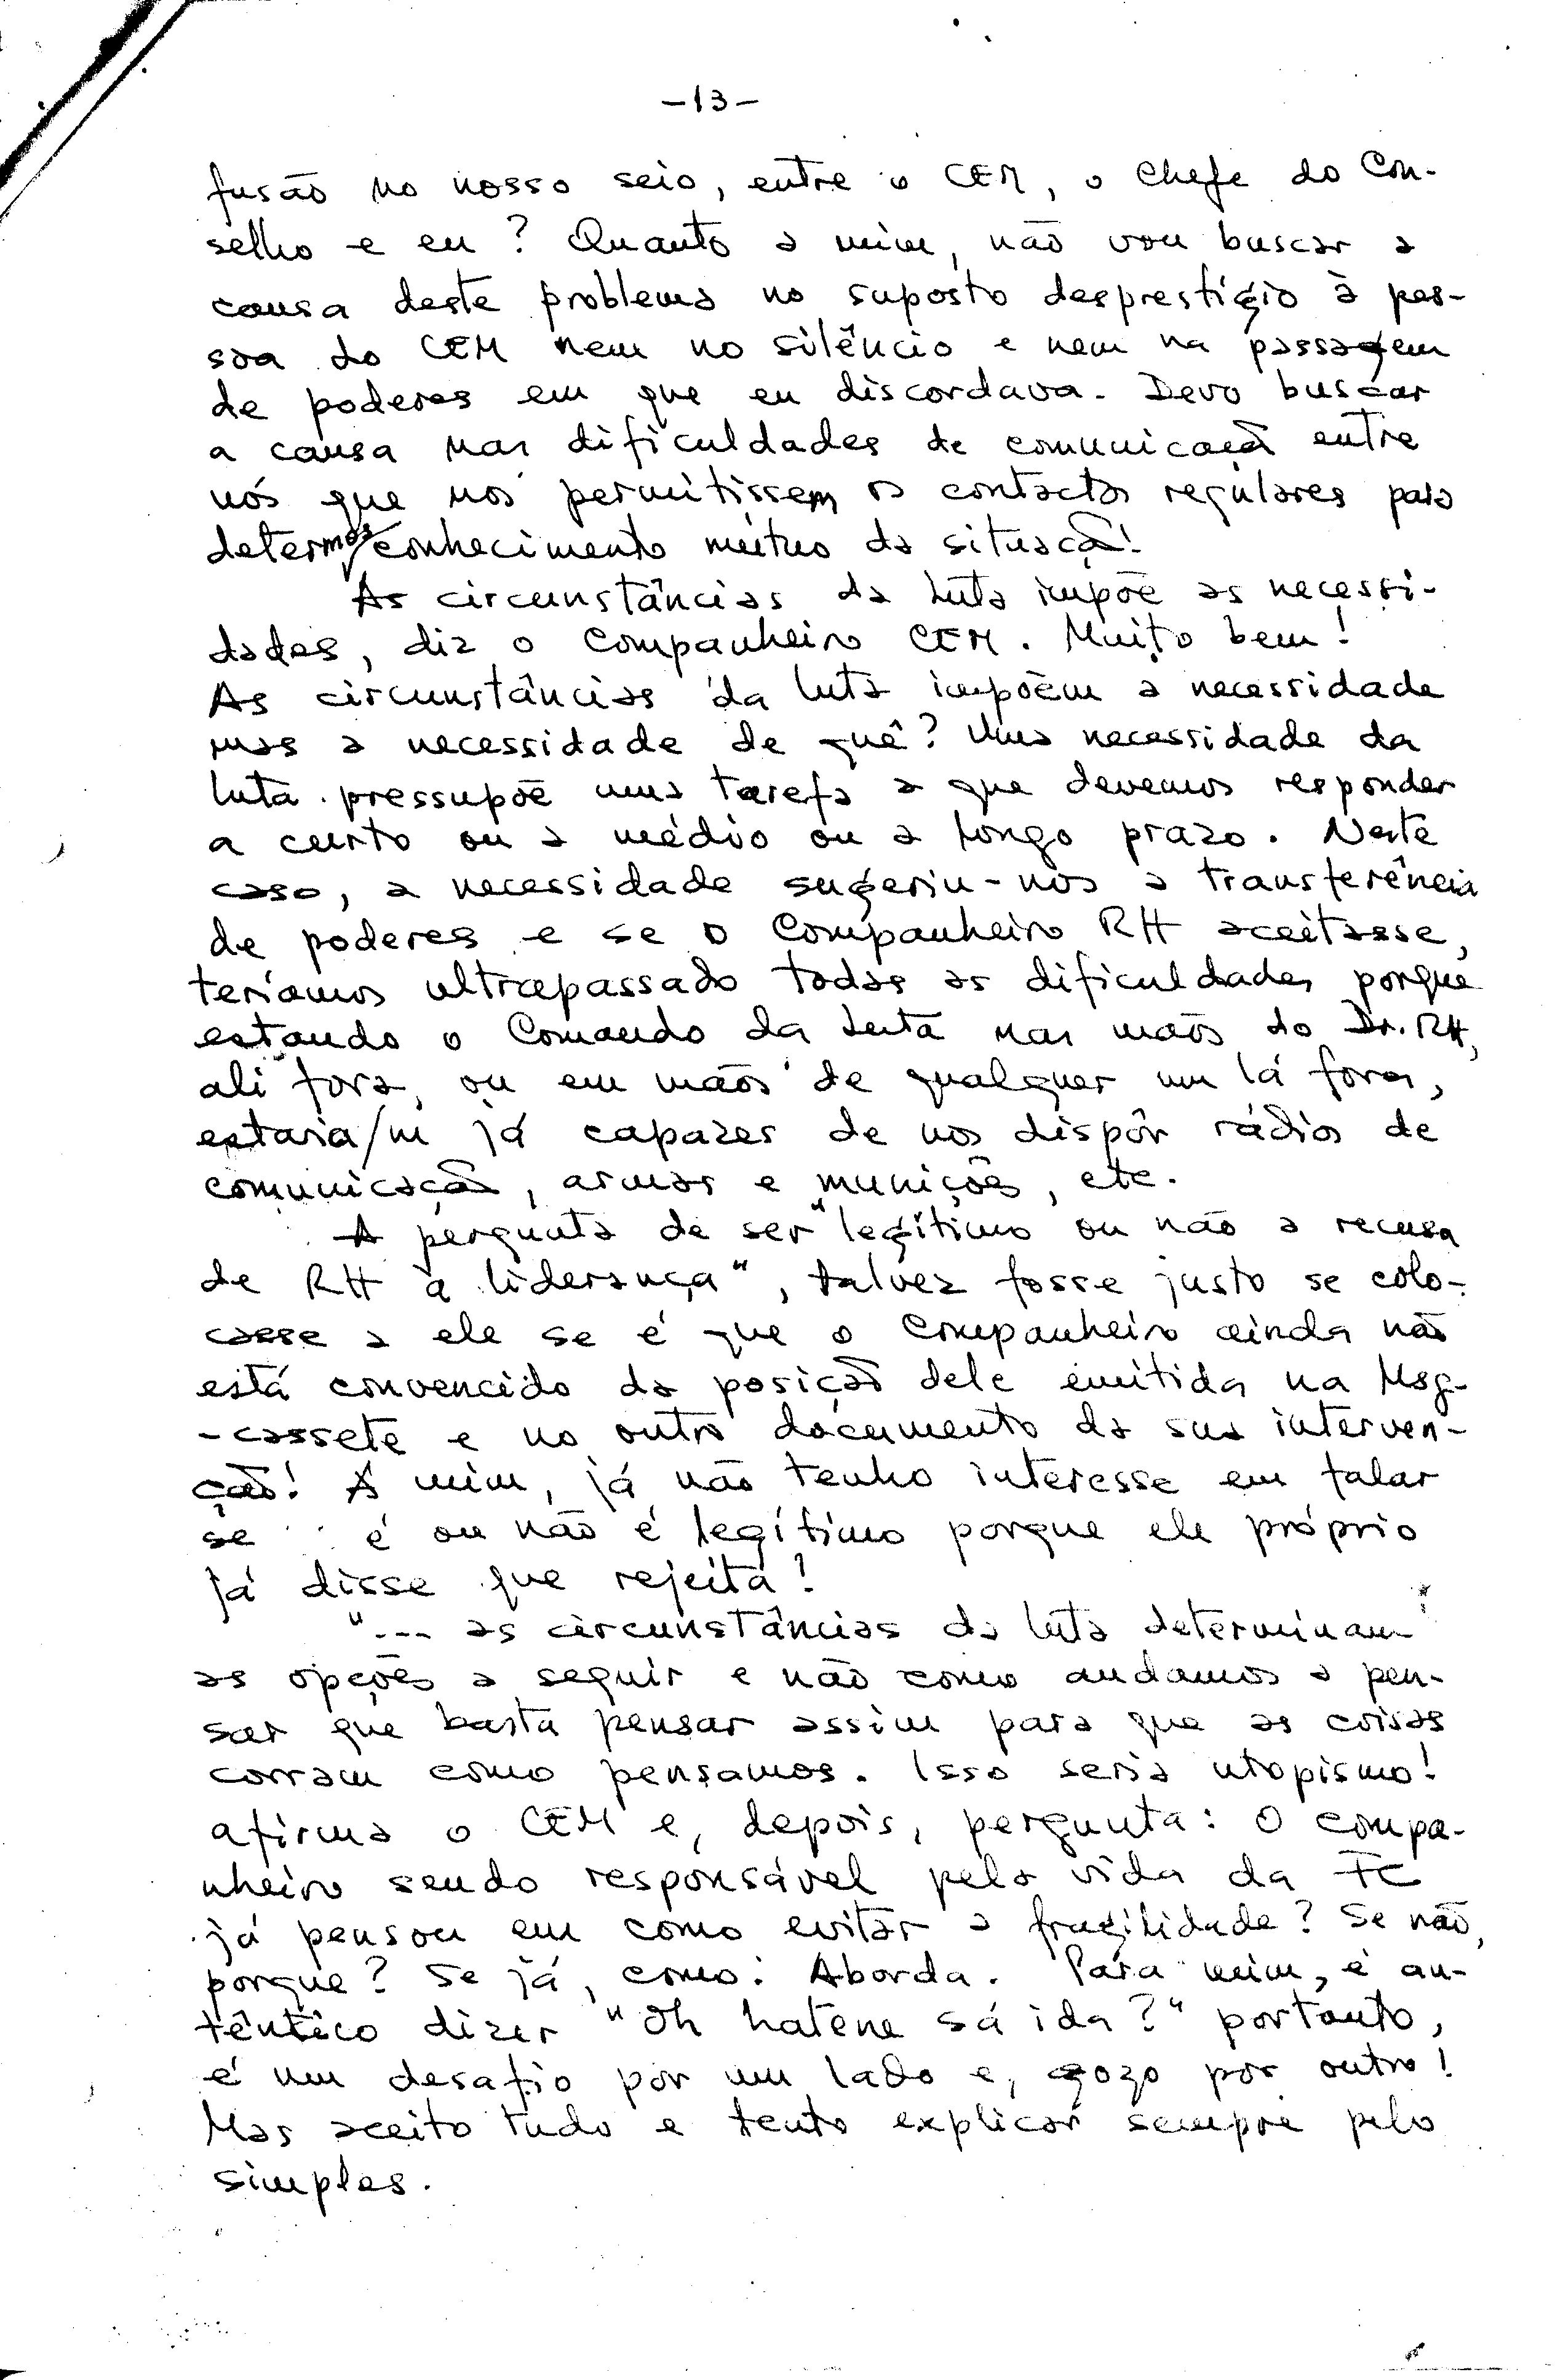 -13-
fusão no nosso seio, entre o CEM, o Chefe do Con-
selho e eu? Quanto a mim, não vou buscar a
causa deste problema no suposto desprestígio à pes-
soa do CEM nem no silêncio e nem na passagem
de poderes em que eu discordava. Devo buscar
a causa nas dificuldades de comunicação entre
nós que nos permitissem os contactos regulares para
determos conhecimento mútuo da situação!
As circunstâncias da luta impõe as necessi-
dades, diz o Companheiro CEM. Muito bem!
As circunstâncias da luta impõem a necessidade
mas a necessidade de quê? Uma necessidade da
luta pressupõe uma tarefa a que devemos responder
a curto ou a médio ou a longo prazo. Neste
caso, a necessidade sugeriu-nos a transferência
de poderes e se o Companheiro RH aceitasse,
teríamos ultrapassado todas as dificuldades porque
estando o Comando da Luta nas mãos do Dr. RH,
ali fora, ou em mãos de qualquer um lá fora,
estaria/m já capazes de nos dispôr rádios de
comunicação, armas e munições, etc.
A pergunta de ser "legítimo ou não a recusa
de RH à liderança", talvez fosse justo se colo-
casse a ele se é que o Companheiro ainda não
está convencido da posição dele emitida na Msg-
-cassete e no outro documento da sua interven-
ção! A mim, já não tenho interesse em falar
se é ou não é legítimo porque ele próprio
já disse que rejeita!
"... as circunstâncias da luta determinam
as opções a seguir e não como andamos a pen-
sar que basta pensar assim para que as coisas
corram como pensamos. Isso seria utopismo!
afirma o CEM e, depois, pergunta: O compa-
nheiro sendo responsável pela vida da FC
já pensou em como evitar a fragilidade? Se não,
porque? Se já, como: Aborda. Para mim, é au-
têntico dizer "Oh hatene sá ida?" portanto,
é um desafio por um lado e, gozo por outro!
Mas aceito tudo e tento explicar sempre pelo
simples.